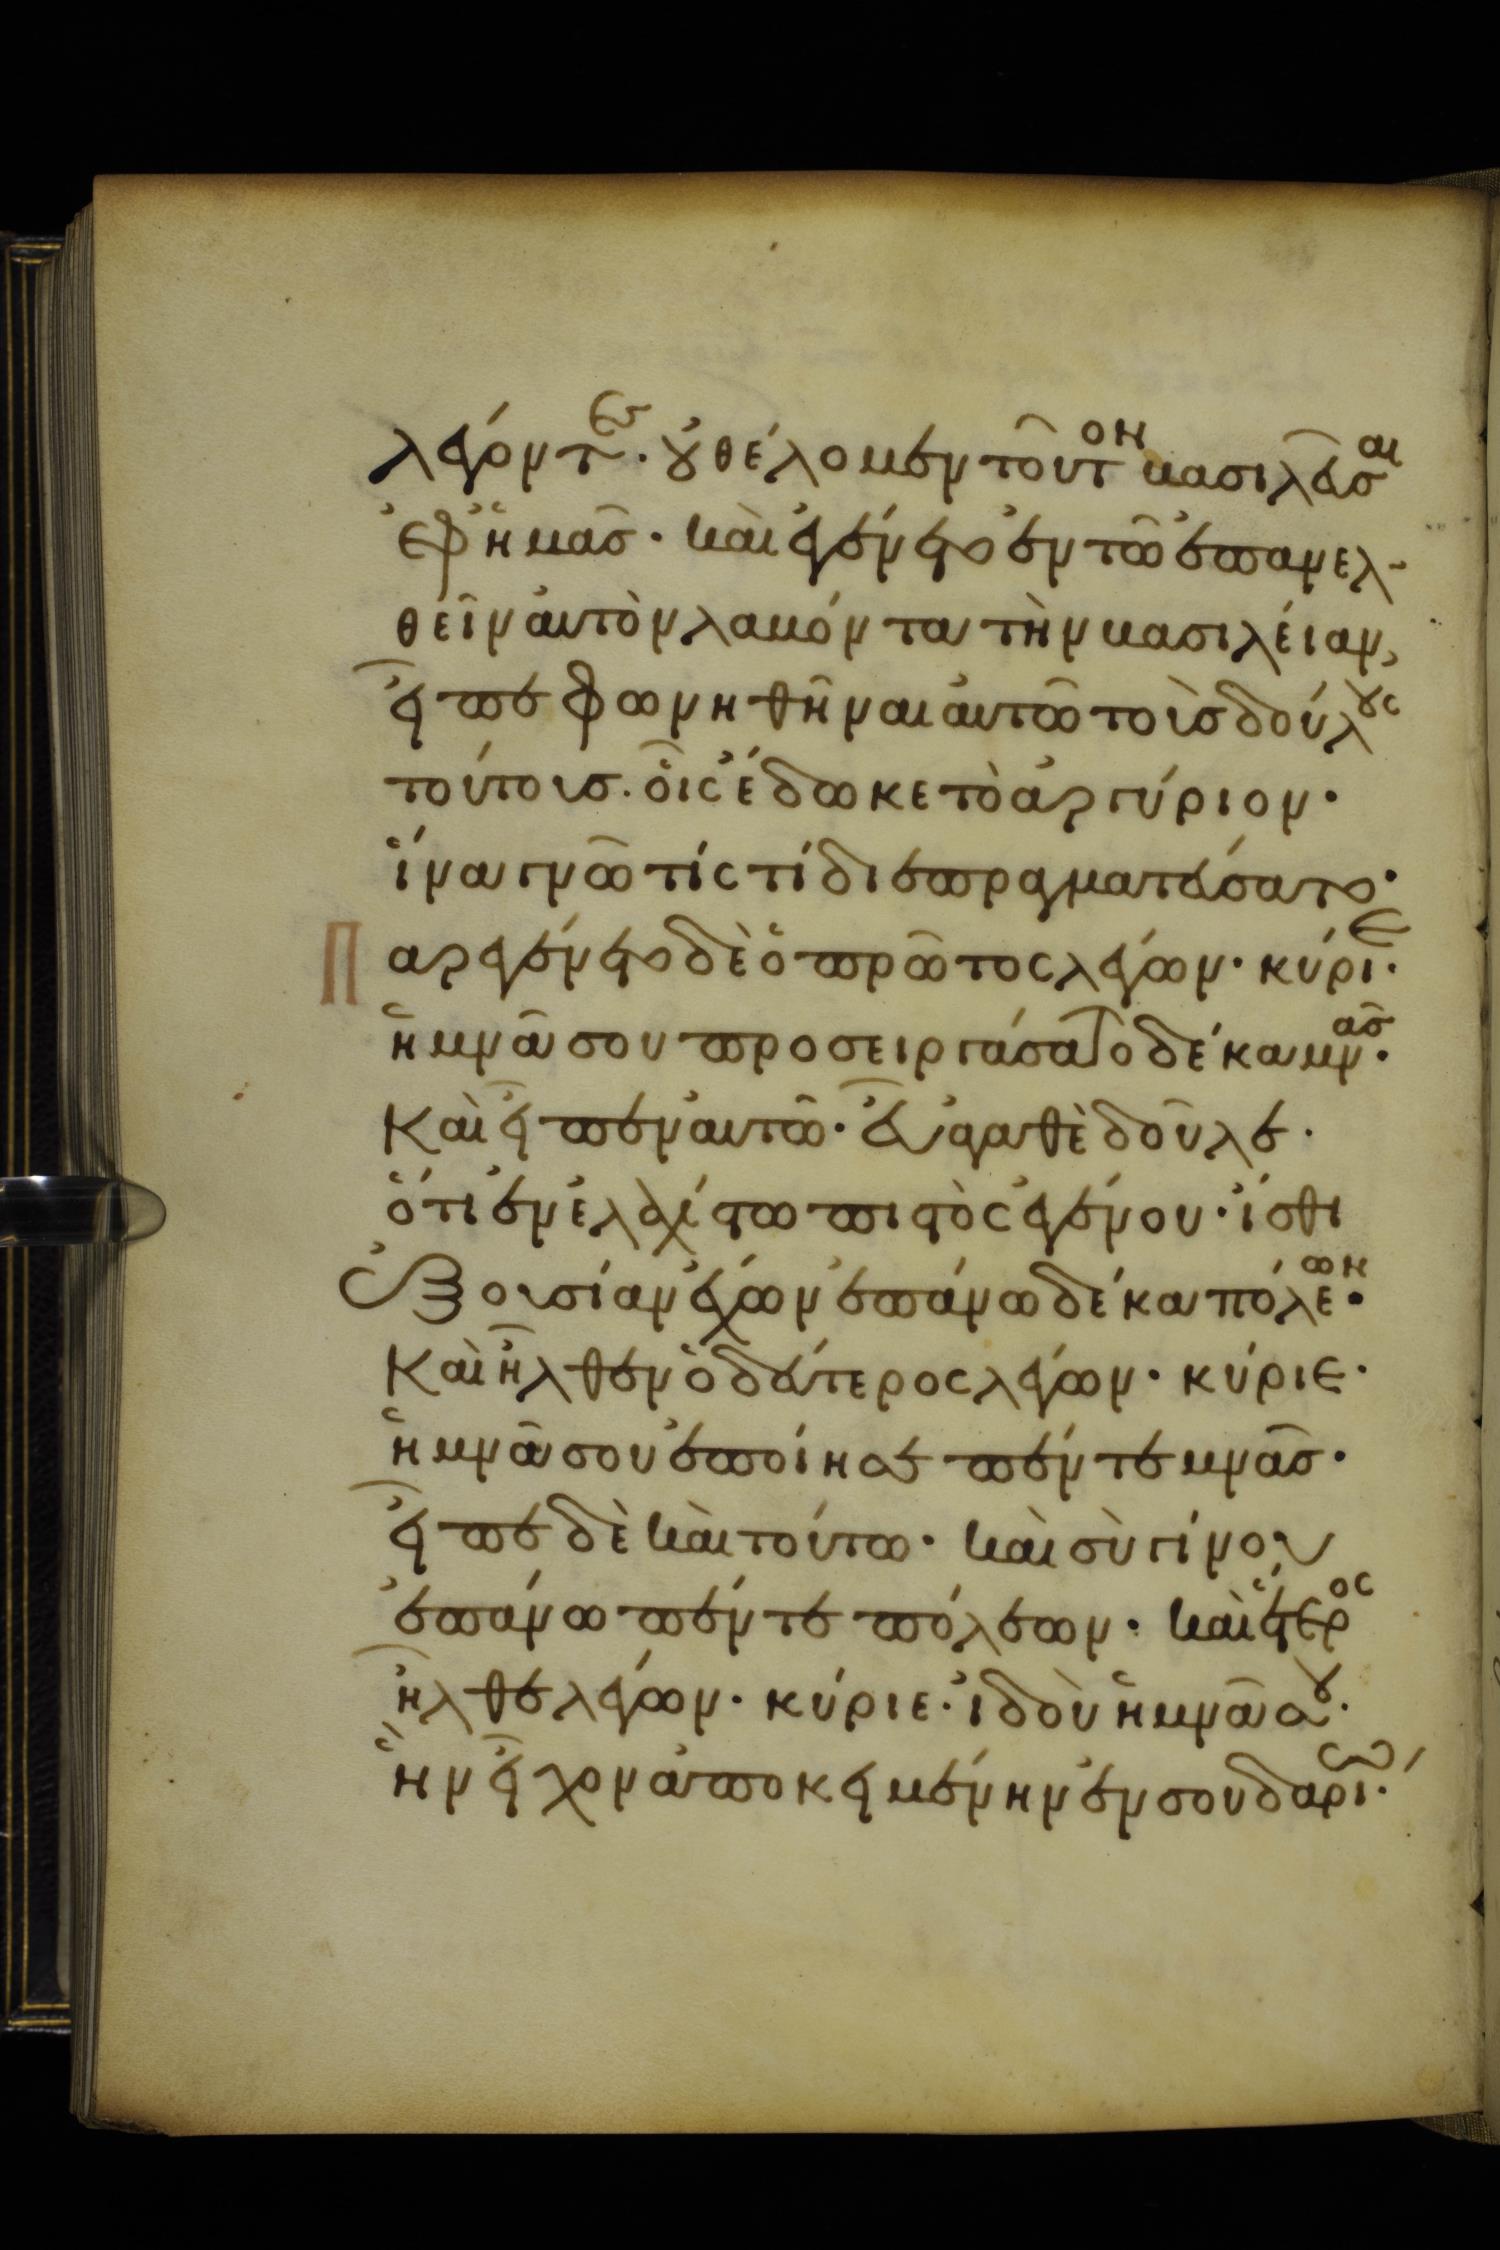 λέγοντες· οὐ θέλομεν τοῦτον βασιλεῦσαι
ἐφ ἡμᾶς· καὶ ἐγένετο ἐν τῶ ἐπανελ-
θεῖν αὐτὸν λαβόντα τὴν βασιλείαν,
εἶπε φωνηθῆναι αὐτῶ τοὺσ δούλους
τούτουσ· οἷς ἔδωκε τὸ ἀργύριον·
ἵνα γνῶ τίς τί διεπραγματεύσατο·
Παρεγένετο δὲ ὁ πρῶτος λέγων· κύριε·
ἡ μνᾶ σου προσειργάσατο δέκα μνᾶς·
Καὶ εἶπεν αὐτῶ· εὖ ἀγαθὲ δοῦλε·
ὅτι ἐν ἐλαχίστω πιστὸς ἐγένου· ἴσθι
ἐξουσίαν ἔχων ἐπάνω δέκα πόλεων·
Καὶ ἦλθεν ὁ δεύτερος λέγων· κύριε·
ἡ μνᾶ σου ἐποίησε πέντε μνᾶς·
εἶπε δὲ καὶ τούτω· καὶ σὺ γίνου
ἐπάνω πέντε πόλεων· καὶ ἕτερος
ἦλθε λέγων· κύριε· ἰδοὺ ἡ μνᾶ σου·
ἣν εἶχον ἀποκειμένην ἐν σουδαρίω·